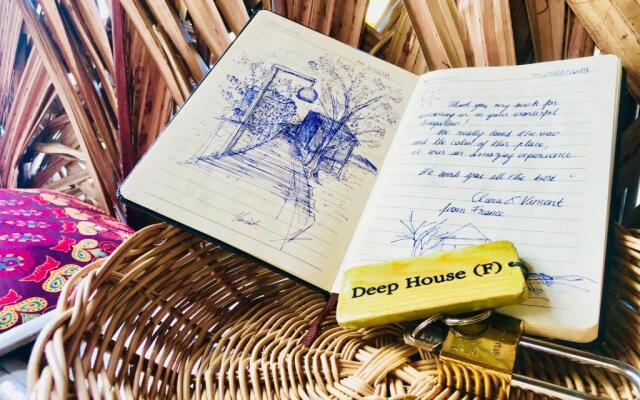 Thank you very much for
welcoming us in your wonderful
bungalow!
We really loved the view
and the calm of this place,
it was an amazing experience
We wish you all the best!
Clara & Vincent
from France
Deep House (F)